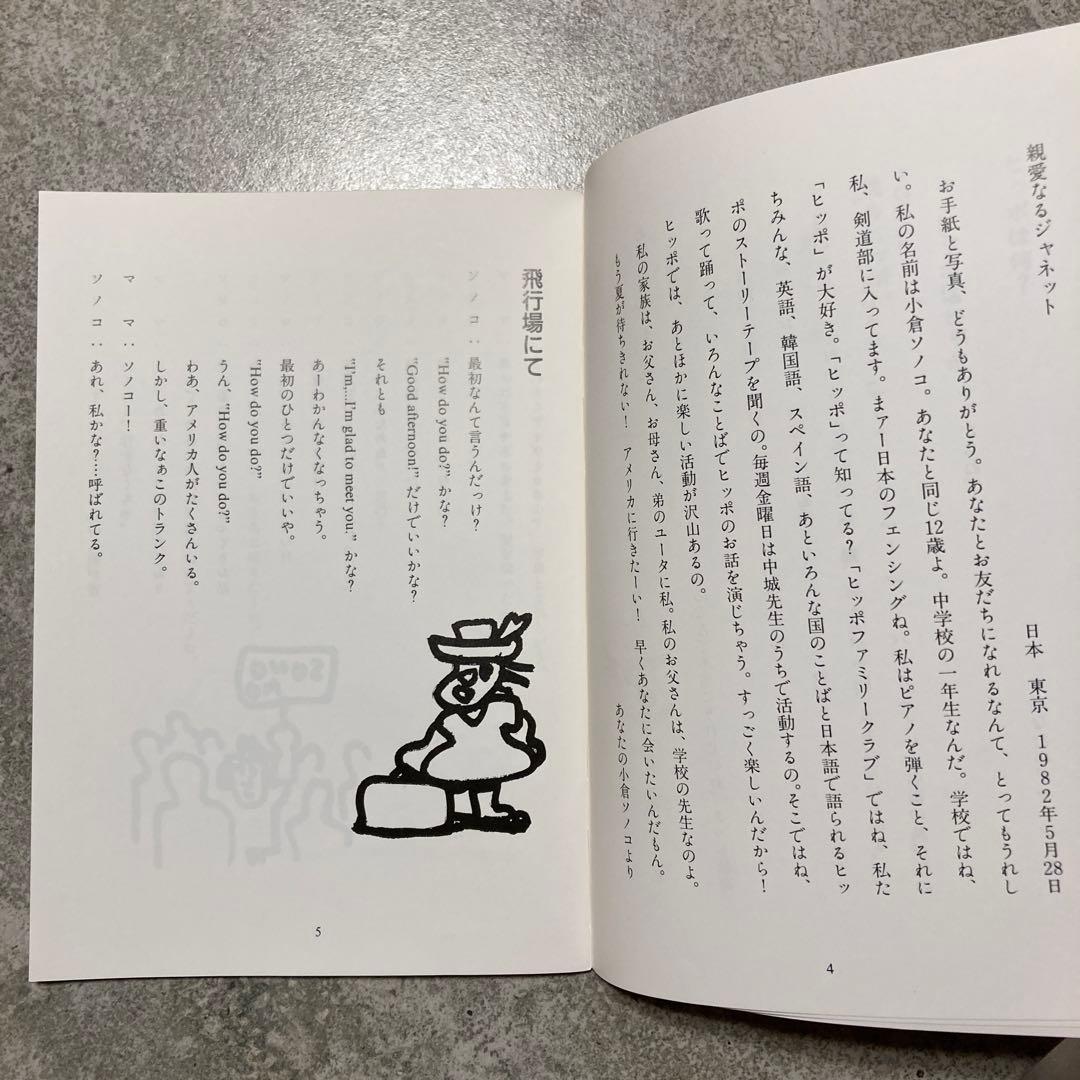 親愛なるジャネット
日本 東京 1982年5月28日
お手紙と写真、どうもありがとう。あなたとお友だちになれるなんて、とってもうれし
い。私の名前は小倉ソノコ。あなたと同じ12歳よ。中学校の一年生なんだ。学校ではね、
私、剣道部に入ってます。まァー日本のフェンシングね。私はピアノを弾くこと、それに
「ヒッポ」が大好き。「ヒッポ」って知ってる?「ヒッポファミリークラブ」ではね、私た
ちみんな、英語、韓国語、スペイン語、あといろんな国のことばと日本語で語られるヒッ
ポのストーリーテープを聞くの。毎週金曜日は中城先生のうちで活動するの。そこではね、
歌って踊って、いろんなことばでヒッポのお話を演じちゃう。すっごく楽しいんだから!
ヒッポでは、あとほかに楽しい活動が沢山あるの。
私の家族は、お父さん、お母さん、弟のユータに私。私のお父さんは、学校の先生なのよ。
もう夏が待ちきれない! アメリカに行きたーい! 早くあなたに会いたいんだもん。
あなたの小倉ソノコより
4
飛行場にて
ソノコ:最初なんて言うんだっけ?
"How do you do?" かな?
"Good afternoon!" だけでいいかな?
それとも
"I'm,...I'm glad to meet you." かな?
あーわかんなくなっちゃう。
最初のひとつだけでいいや。
"How do you do?"
うん、"How do you do?"
わあ、アメリカ人がたくさんいる。
しかし、重いなぁこのトランク。
ママ:ソノコー!
ソノコ:あれ、私かな?……呼ばれてる。
5